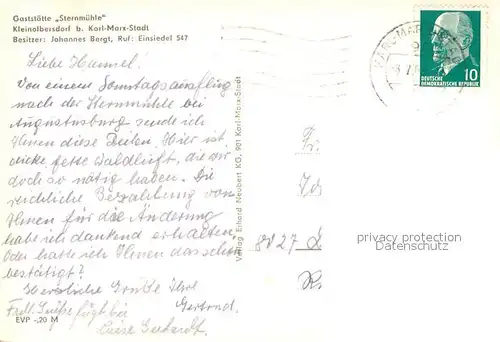 Gaststätte „Sternmühle"
Kleinolbersdorf b. Karl-Marx-Stadt
Besitzer: Johannes Bergt, Ruf: Einsiedel 547
Liebe Hammel.
Von einem Sonntagsausflug
nach der Sternmühle bei
Augustusburg sende ich
Ihnen diese Zeilen. Hier ist
dicke fette Waldluft, die wir
doch so nötig haben. Die
reichliche Bezahlung von
Ihnen für die Änderung
habe ich dankend erhalten,
Oder hatte ich Ihnen das schon
bestätigt?
Herzliche Grüße Ihre
Gertrud.
Frdl. Grüße fügt bei
Luise
EVP -,20 M
Verlag Erhard Neubert KG, 901 Karl-Marx-Stadt
KARL-MARX-
10
DEUTSCHE
DEMOKRATISCHE REPUBLIK
8027
privacy protection
Datenschutz